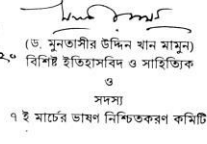 (ড. মুনতাসীর উদ্দিন খান মামুন)
বিশিষ্ট ইতিহাসবিদ ও সাহিত্যিক
ও
সদস্য
৭ ই মার্চের ভাষণ নিশ্চিতকরণ কমিটি